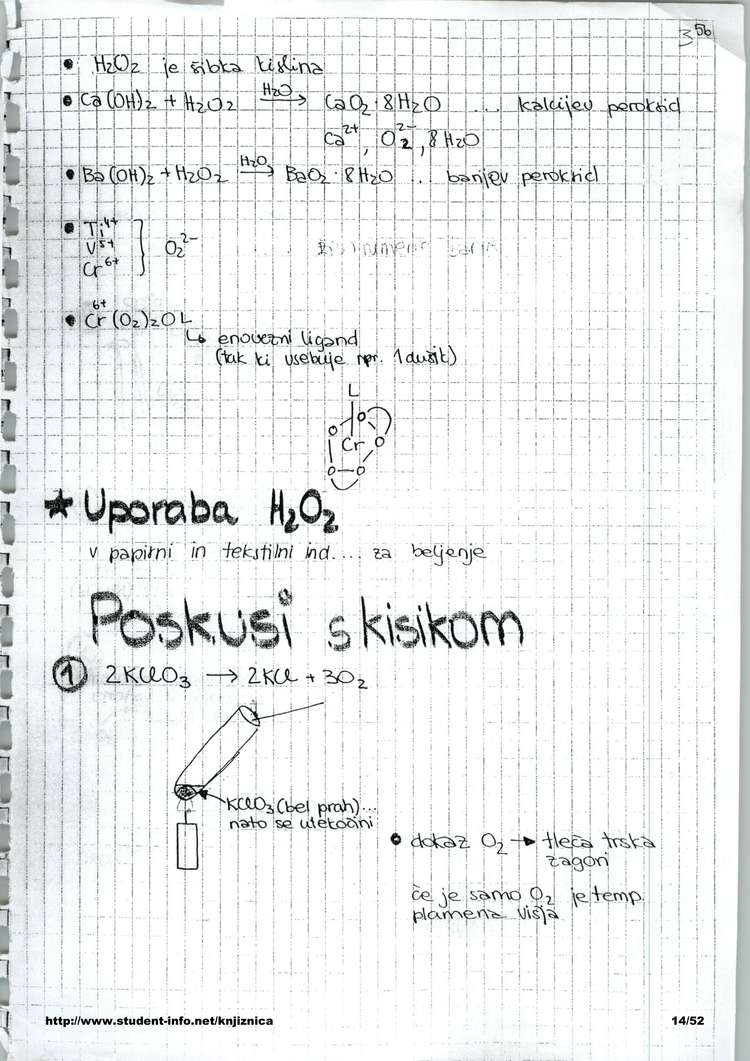 3 5b
• H₂O₂ je šibka kislina
• Ca(OH)₂ + H₂O₂ —H₂O→ CaO₂·8H₂O ... kalcijev peroksid
Ca²⁺, O₂²⁻, 8H₂O
• Ba(OH)₂ + H₂O₂ —H₂O→ BaO₂·8H₂O .. barijev peroksid
• Ti⁴⁺
V⁵⁺ } O₂²⁻
Cr⁶⁺
6+
• Cr(O₂)₂OL
↳ enovezni ligand
(tak ki vsebuje npr. 1 dušik)
L
O O
Cr O
O—O
★ Uporaba H₂O₂
v papirni in tekstilni ind.... za beljenje
Poskusi s kisikom
① 2KClO₃ → 2KCl + 3O₂
KClO₃ (bel prah)...
nato se utekočini
• dokaz O₂ → tleča trska
zagori
če je samo O₂ je temp.
plamena višja
http://www.student-info.net/knjiznica
14/52